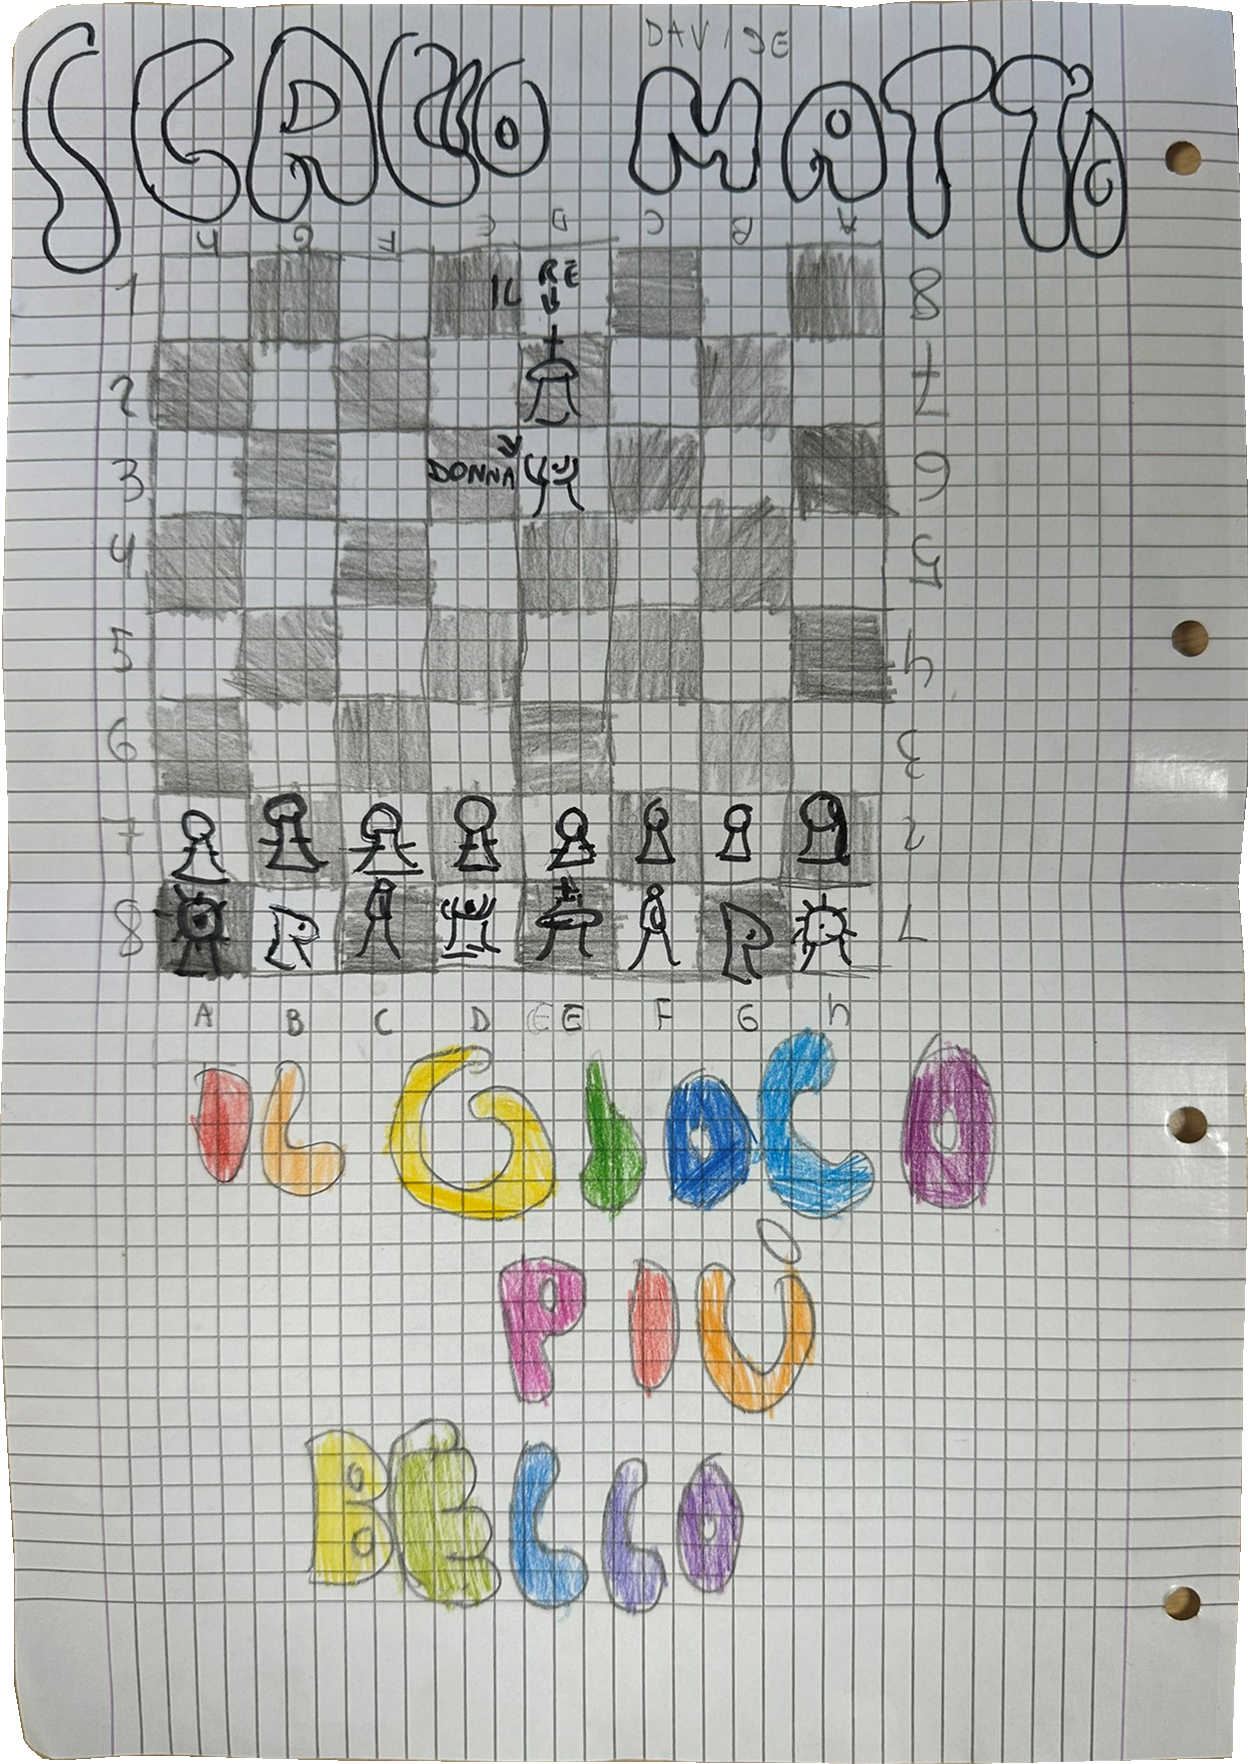 DAVIDE
SCACCO MATTO
H G F E D C B A
1 IL RE 8
2 7
3 DONNA 6
4 5
5 4
6 3
7 2
8 1
A B C D E F G h
IL GIOCO
PIÙ
BELLO